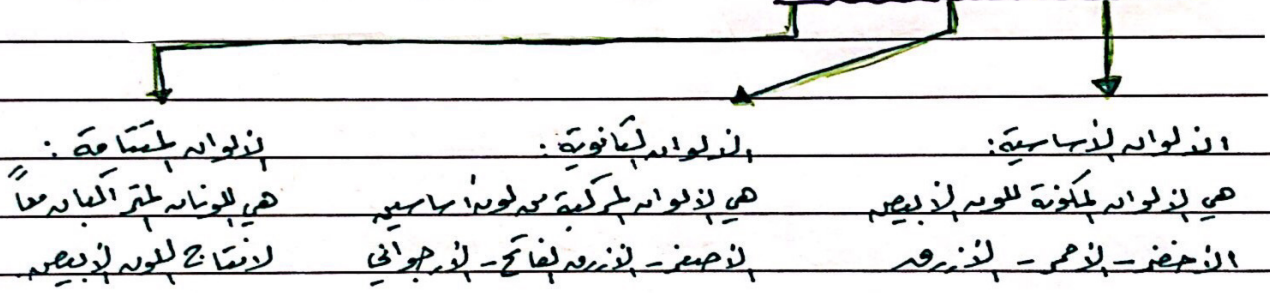 الألوان الأساسية:
هي الألوان المكونة للون الأبيض
الأخضر - الأحمر - الأزرق
الألوان الثانوية:
هي الألوان المركبة من لون أساسين
الأصفر - الأزرق الفاتح - الأرجواني
الألوان المتتامة:
هي اللونان المتراكبان معاً
لانتاج اللون الأبيض